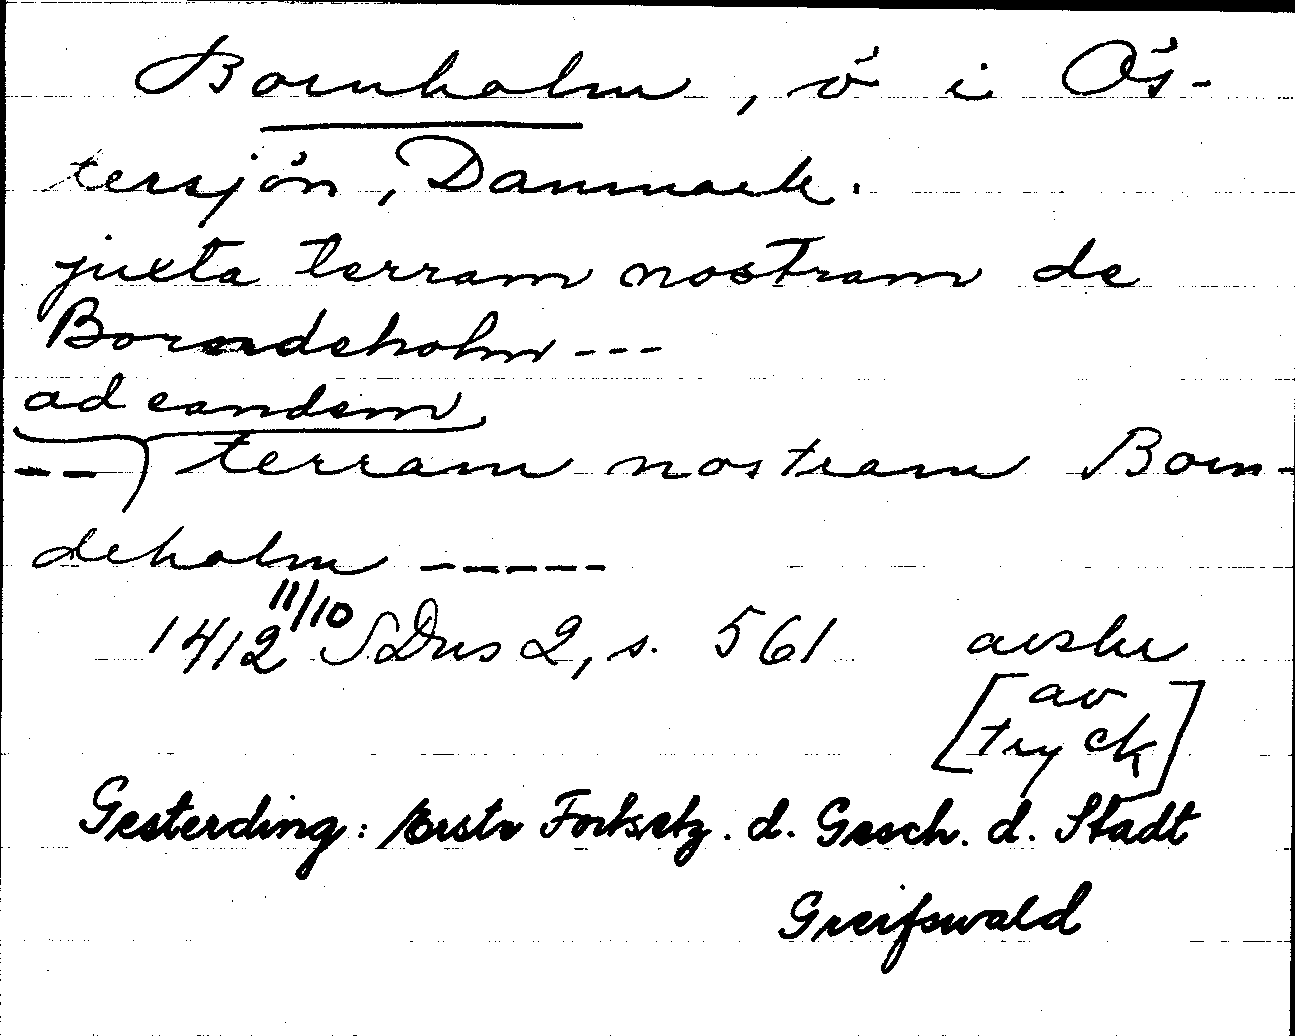 Bornholm, ö i Ös-
tersjön, Danmark.
juxta terram nostram de
Borndeholm ---
ad eandem
-- terram nostram Born-
deholm -----
1412 11/10 SDns 2, s. 561 avskr
[av
tryck]
Gesterding: Erste Fortsetz. d. Gesch. d. Stadt
Greifswald